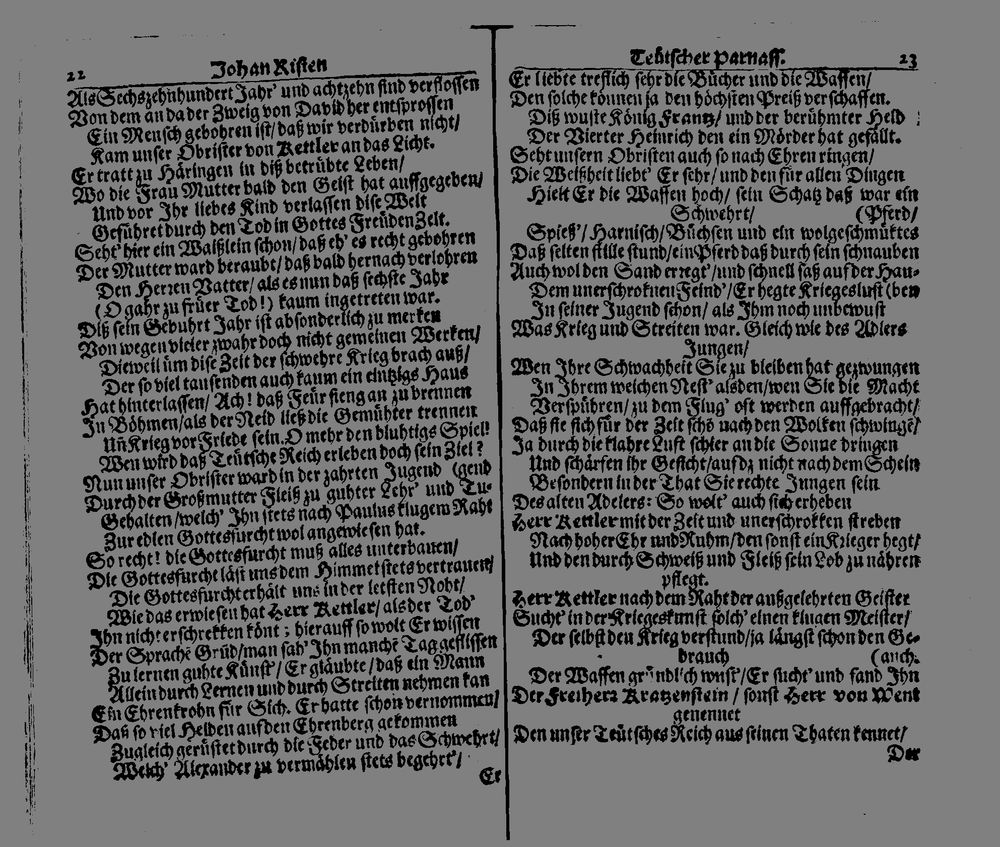 22 Johan Risten
Als Sechszehnhundert Jahr' und achtzehn sind verflossen
Von dem an da der Zweig von David her entsprossen
Ein Mensch gebohren ist/ daß wir verdürben nicht/
Kam unser Obrister von Kettler an das Licht.
Er tratt zu Häringen in diß betrübte Leben/
Wo die Frau Mutter bald den Geist hat auffgegeben/
Und vor Ihr liebes Kind verlassen dise Welt
Geführet durch den Tod in Gottes Freüden Zelt.
Seht' hier ein Wäißlein schon/ daß eh' es recht gebohren
Der Mutter ward beraubt/ daß bald hernach verlohren
Den Herzen Vatter/ als es nun daß sechste Jahr
(O gahr zu früer Tod!) kaum ingetreten war.
Diß sein Gebuhrt Jahr ist absonderlich zu merken
Von wegen vieler zwahr doch nicht gemeinen Werken/
Dieweil üm dise Zeit der schwehre Krieg brach auß/
Der so viel tausenden auch kaum ein eintzigs Haus
Hat hinterlassen/ Ach! daß Feür fieng an zu brennen
In Böhmen/ als der Neid ließ die Gemühter trennen
Uñ Krieg vor Friede sein. O mehr den bluhtigs Spiel!
Wen wird daß Teütsche Reich erleben doch sein Ziel?
Nun unser Obrister ward in der zahrten Jugend (gend
Durch der Großmutter Fleiß zu guhter Lehr' und Tu-
Gehalten/ welch' Ihn stets nach Paulus klugem Raht
Zur edlen Gottesfurcht wol angewiesen hat.
So recht! die Gottesfurcht muß alles unterbauen/
Die Gottesfurcht läst uns dem Himmel stets vertrauen/
Die Gottesfurcht erhält uns in der letsten Noht/
Wie das erwiesen hat Herr Kettler/ als der Tod'
Ihn nicht erschrekken könt; hierauff so wolt Er wissen
Der Sprachē Grüd/ man sah' Ihn manchē Tag geflissen
Zu lernen guhte Künst'/ Er gläubte/ daß ein Mann
Allein durch Lernen und durch Streiten nehmen kan
Ein Ehrenkrohn für Sich. Er hatte schon vernommen/
Daß so viel Helden auf den Ehrenberg gekommen
Zugleich gerüstet durch die Feder und das Schwehrt/
Welch' Alexander zu vermählen stets begehrt'/
Er
Teütscher Parnass. 23
Er liebte treflich sehr die Bücher und die Waffen/
Den solche können ja den höchsten Preiß verschaffen.
Diß wuste König Frantz/ und der berühmter Held
Der Vierter Heinrich den ein Mörder hat gefällt.
Seht unsern Obristen auch so nach Ehren ringen/
Die Weißheit liebt' Er sehr/ und den für allen Dingen
Hielt Er die Waffen hoch/ sein Schatz daß war ein
Schwehrt/ (Pferd/
Spieß'/ Harnisch/ Büchsen und ein wolgeschmüktes
Daß selten stille stund/ ein Pferd daß durch sein schnauben
Auch wol den Sand erregt'/ und schnell saß auf der Hau-
Dem unerschroknen Feind'/ Er hegte Krieges lust (ben
In seiner Jugend schon/ als Ihm noch unbewust
Was Krieg und Streiten war. Gleich wie des Adlers
Jungen/
Wen Ihre Schwachheit Sie zu bleiben hat gezwungen
In Ihrem weichen Nest' alsden/ wen Sie die Macht
Verspühren/ zu dem Flug' oft werden auffgebracht/
Daß sie sich für der Zeit schō nach den Wolken schwingē/
Ja durch die klahre Luft schier an die Sonne dringen
Und schärfen ihr Gesicht/ auf dz nicht nach dem Schein
Besondern in der That Sie rechte Jungen sein
Des alten Adelers: So wolt' auch sich erheben
Herr Kettler mit der Zeit und unerschrokken streben
Nach hoher Ehr und Ruhm/ den sonst ein Krieger hegt/
Und den durch Schweiß und Fleiß sein Lob zu nähren
pflegt.
Herr Kettler nach dem Raht der außgelehrten Geister
Sucht' in der Krieges kunst solch' einen klugen Meister/
Der selbst den Krieg verstund/ ja längst schon den Ge-
brauch (auch.
Der Waffen gründlich wust'/ Er sucht' und fand Ihn
Der Freiherz Kratzenstein/ sonst Herr von Went
genennet
Den unser Teütsches Reich aus seinen Thaten kennet/
Der